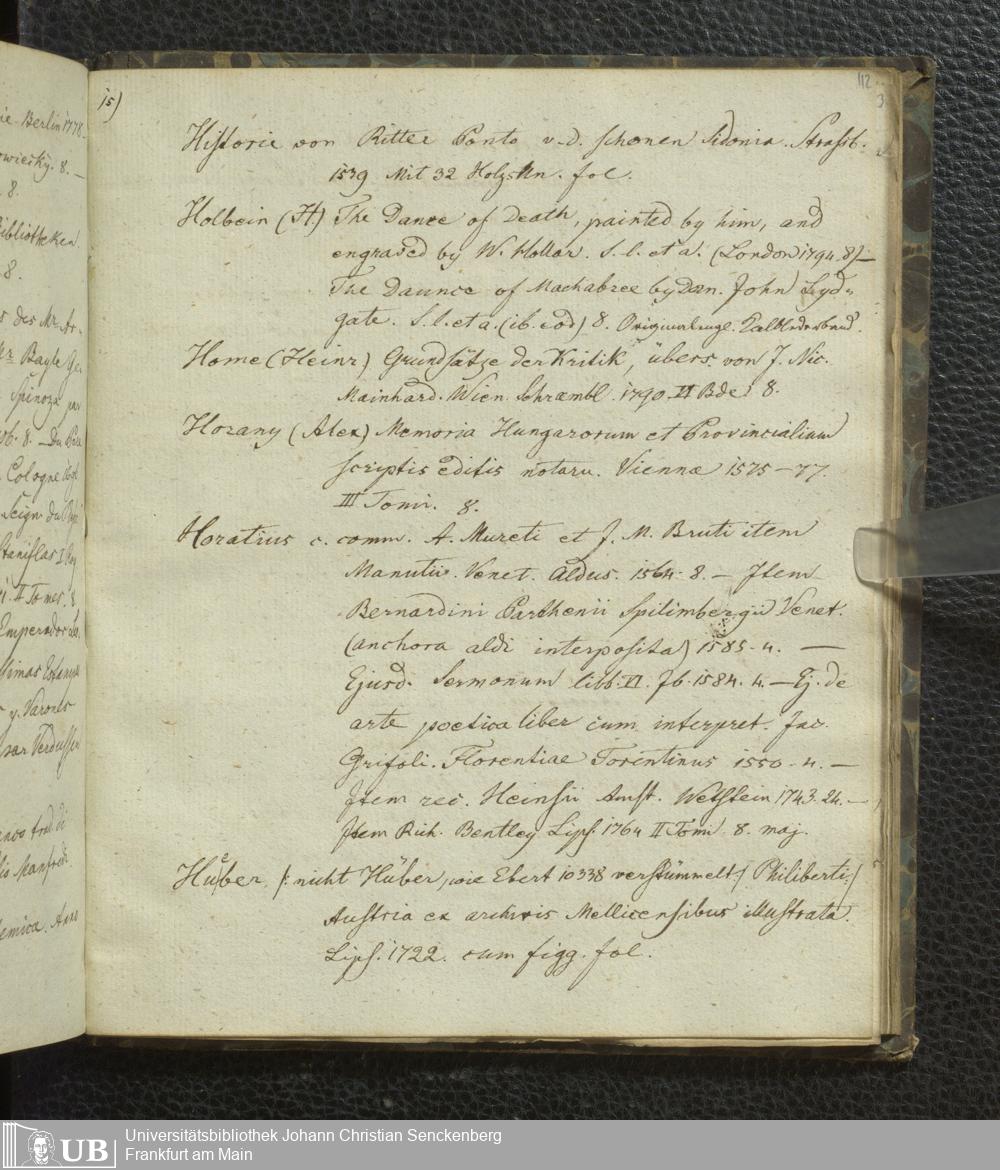 ie Berlin 1778
owiesky. 8. —
8.
ibliotheken
8.
s des Mr. Ar-
Mr Bayle
Spinoza par
8. — Du
Cologne
Seign du
Stanislas I
II Tomes. 8
Emperador
timas
y. Varones
sar Verdussen
trad. di
lis Manfredi
emica.
15)
112
3
Historie von Ritter Ponto v. d. schonen Sidonia. Strassb.
1539 Mit 32 Holzsttn. fol.
Holbein (H) The Dance of Death, painted by him, and
engraved by W. Hollar. S. l. et a. (London 1794. 8) —
The Daunce of Machabree by Dan. John Lyd-
gate. S. l. et a. (ib. eod) 8. Originalausg.
Home (Heinr) Grundsätze der Kritik, übers. von J. Nic.
Mainhard. Wien. Schræmbl. 1790. II Bde. 8.
Horany (Alex) Memoria Hungarorum et Provincialium
scriptis editis notaru. Viennæ 1575–77
III Tomi. 8.
Horatius c. comm. A. Mureti et J. M. Bruti item
Manutii. Venet. Aldus. 1564. 8. — Item
Bernardini Parthenii Spilimbergii Venet.
(anchora aldi interposita) 1585. 4. —
Ejusd. Sermonum libb. II. Ib. 1584. 4. — Ej. de
arte poetica liber cum interpret. Jac.
Grifoli. Florentiae Torentinus 1550. 4. —
Item rec. Heinsii Amst. Wetstein 1743. 24. —
Item Rich. Bentley Lips. 1764 II Tomi 8. maj.
Hueber /: nicht Hüber, wie Ebert 10338 verstümmelt / Philiberti :/
Austria ex archivis Mellicensibus illustrata.
Lips. 1722. cum figg. fol.
UB
Universitätsbibliothek Johann Christian Senckenberg
Frankfurt am Main